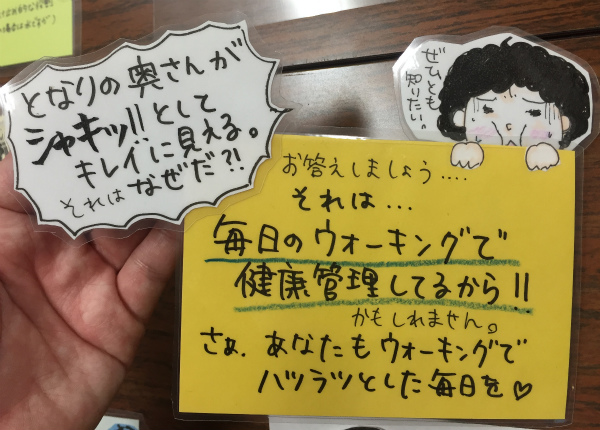 となりの奥さんが
シャキッ!!として
キレイに見える。
それはなぜだ?!
ぜひとも
知りたい。
お答えしましょう....
それは...
毎日のウォーキングで
健康管理してるから!!
かもしれません。
さぁ、あなたもウォーキングで
ハツラツとした毎日を♡